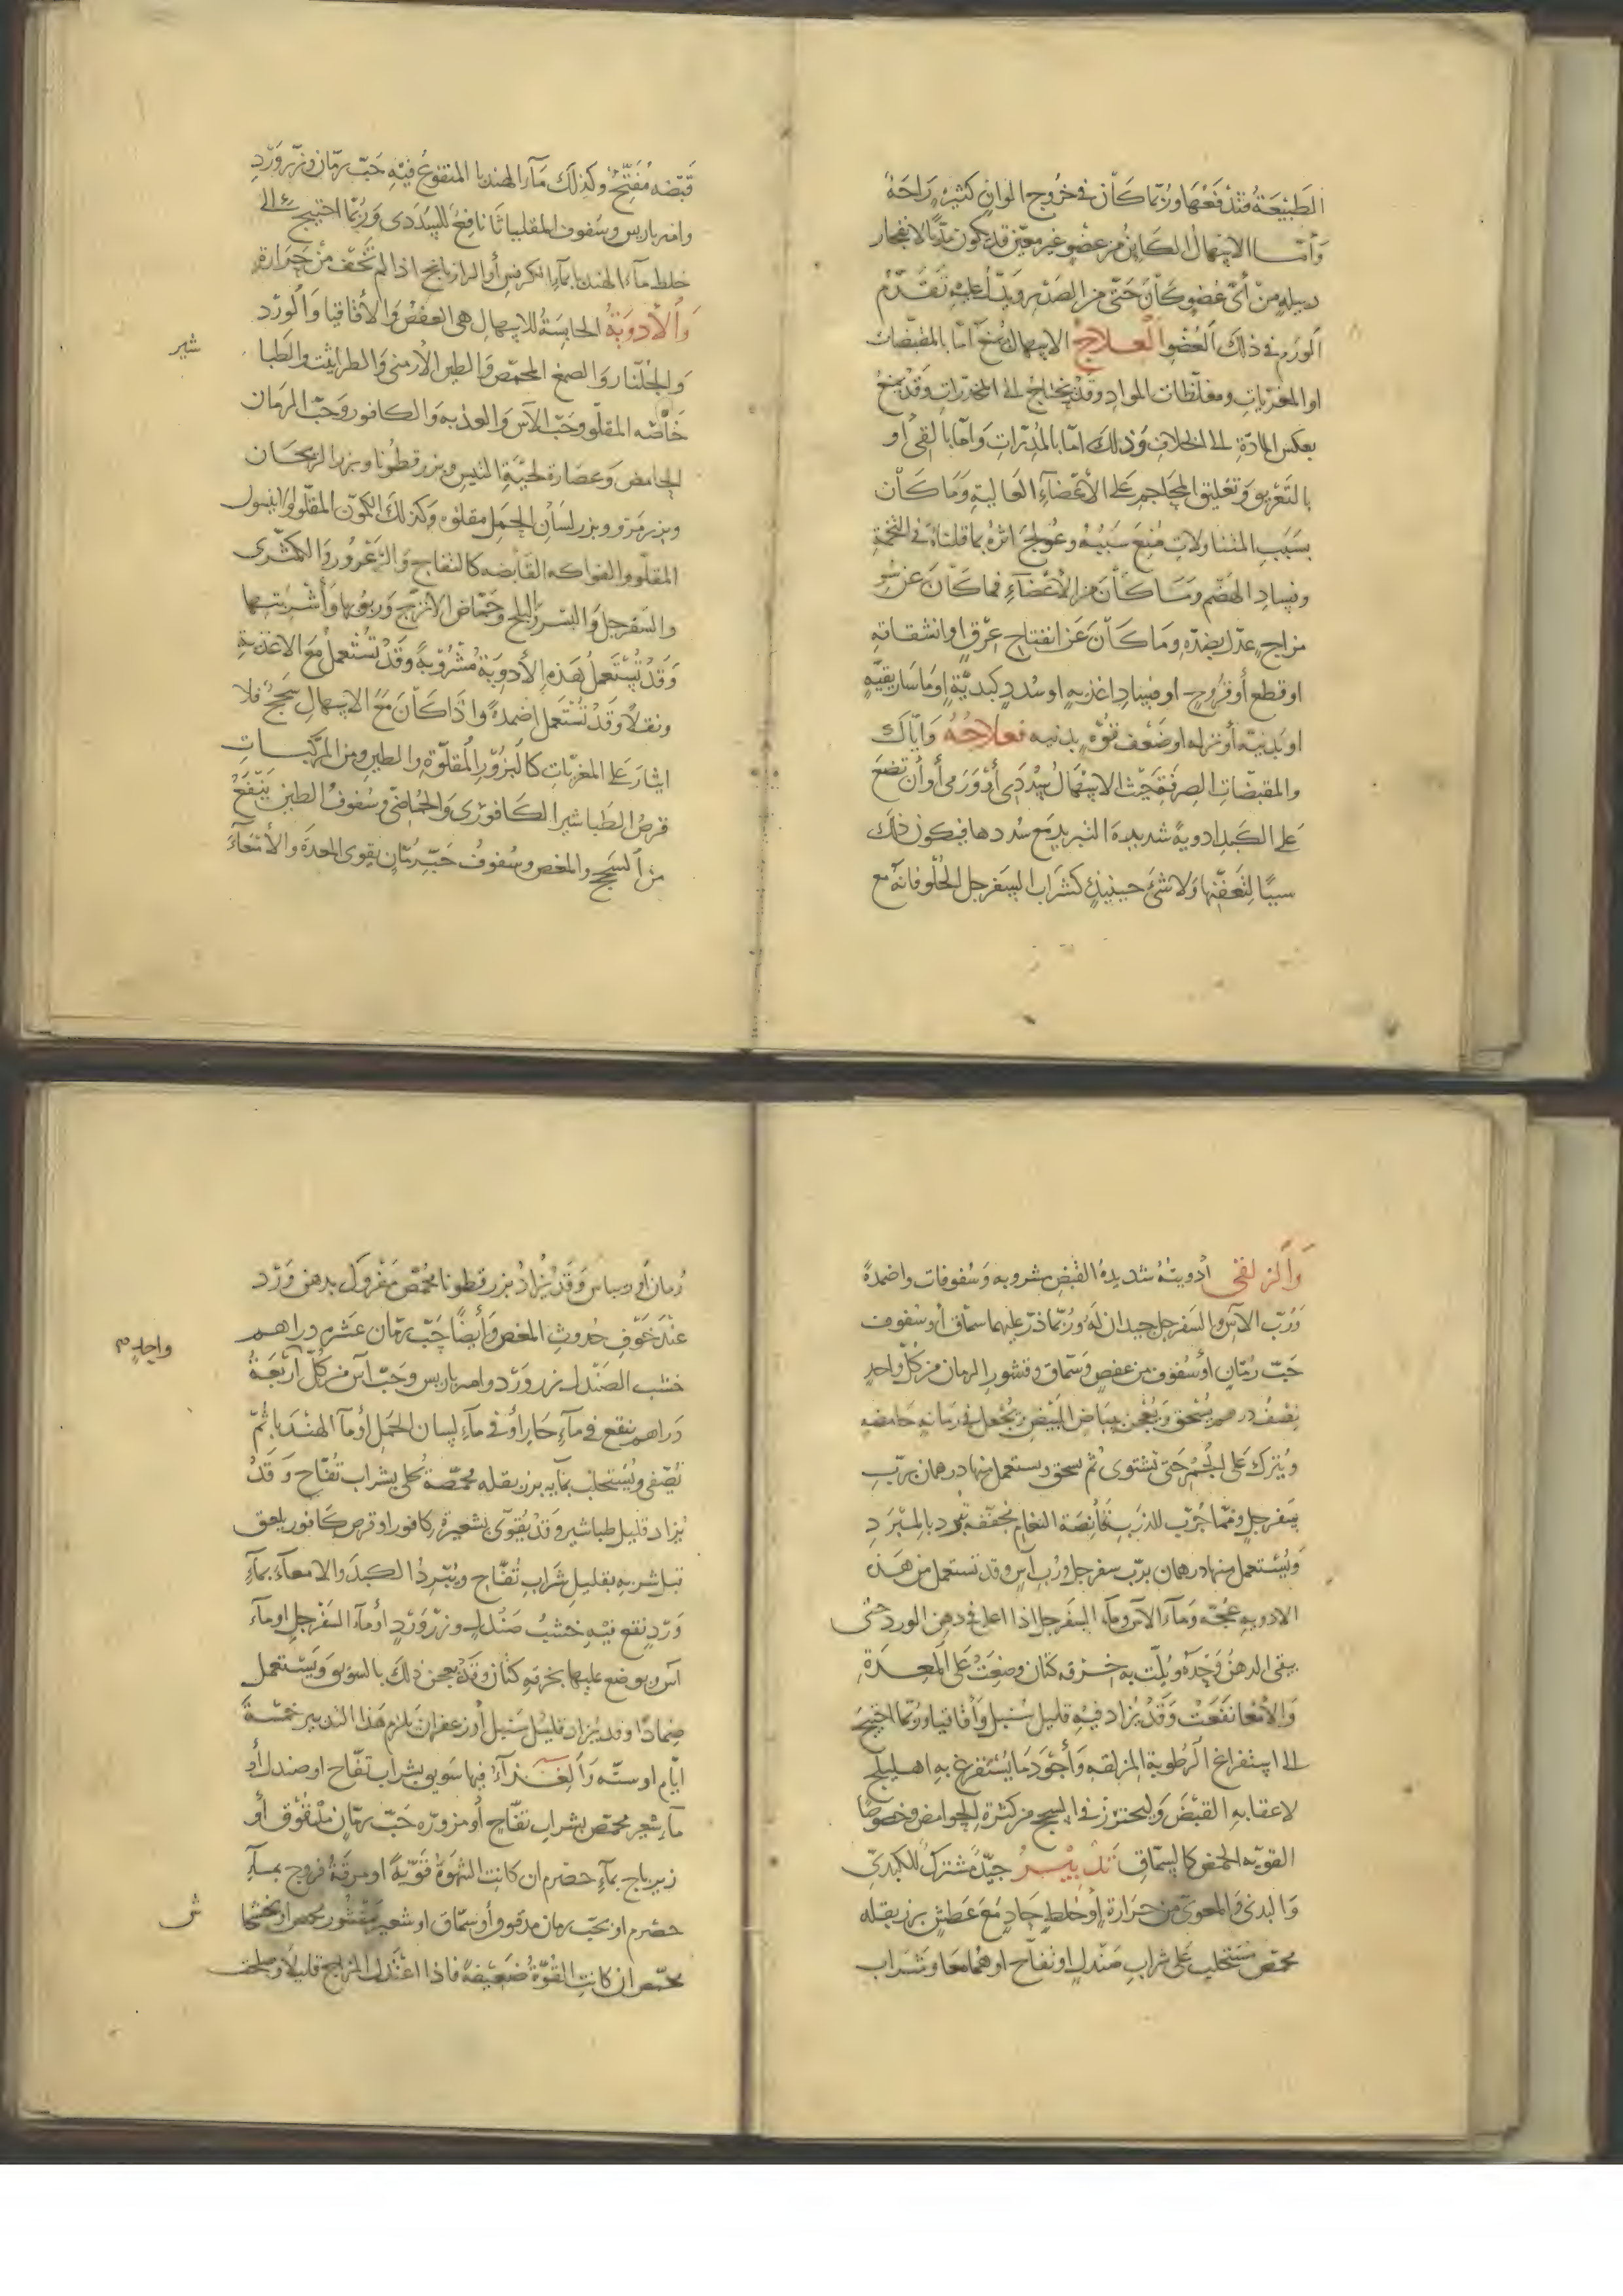 الطَبيْعَةُ فتدْفَعُهَا ورُبّمَا كَأن في خُروج الوانٍ كثيرهٍ رَاحَةُ
وَأمّا الاسهال الكاين من عضوٍ غير معيّن قد يكون مدّيًا لانفجار
دبيله مِنْ أىّ عُضوٍ كَانَ حَتّى من الصَدْر ويدلُّ عليه تَقدّمُ
الورم في ذلك العُضْو العلاج الاسهال يُمنع امّا بالمقبّضات
او المغرّياتِ ومغلّظات الموادِ وقد يحتاج الى المخدراتِ وقد يمنع
بعكس المادّةِ الى الخلافِ وذلك امّا بالمُدرّاتِ وَامّا بالقى أو
بالتَعْريقِ وَتعليق المحَاجم عَلى الأعْضَاءِ العَاليةِ وَمَا كَان
بسَببِ المتناولاتِ مُنِعَ سَبَبُهُ وعُولجَ اثرُهُ بما قلنَاهُ في التخمةِ
وفسادِ الهَضْم ومَا كَأنَ من الأعْضَآءِ فما كَان عن سُو
مزاجٍ عدّل بضدّهِ ومَا كَانَ عَن انفتاحِ عِرْقٍ او انشقاقهِ
او قطعٍ أو قروح او فسادِ اغذيهٍ او سُددٍ كبديّةٍ او مَاسَاريقيّهٍ
او بدنيّه أو نزله او ضَعْف قوّةٍ بدنيه فعلاجُهُ وَايّاك
والمقبضّاتِ الصِرفةِ حَيْث الاسْهَال سُددَى أوْ وَرَمى أوْ أن تضعَ
عَلى الكبدِ ادويةً شديدة التبريدِ مع سُددها فيكون ذلك
سببًا لتعفّنها وَلا شىَ حينيذٍ كشرَاب السَفرجل الحُلْو فانّهُ مع
قَبْضه مُفَتّحٌ وكذلك مَآء الهندبا المنقوع فيهِ حَبّ رمّان وزر وَرْدٍ
وامبر باريس وسفوف المقلياثا نافعُ للسُدَدى وَرُبّما احتيج الى
خلط مآء الهندبا بمآء الكرفس أو الرازيانج اذا لم تَخَف منْ حَرارةٍ
وَالأدويةُ الحابسَةُ للاسهال هى العفصْ وَالأقاقيا وَالورْد
وَالجلّنار وَالصمغ المحمّص وَالطين الأرمنى وَالطراثيث والطبا
شير
خَاصّه المقلّو وحَبّ الآس وَالعذبه وَالكافور وَحَبّ الرمان
الحَامض وَعصَارة لحيَةِ التيس وبزر قطونا وبزر الريحَان
وبزر مَرْو وبزر لسَان الحَمَل مقلوّه وَكذلك الكمّون المقلّو وانيسُول
المقلّو والفواكه القَابضه كالتفاح وَالزعْرُور وَالكمّثرى
والسَفرجل وَالبسْر وَالبلح وحمّاض الأترجّ وربوبها وَأشربتها
وَقدْ تُسْتَعمَلُ هَذه الأدويَةُ مَشْرُوبةً وَقَدْ تُسْتَعمل مَع الاغذيةِ
ونقلاً وَقدْ تُسْتَعمل اضمدةً واذا كَأن مَع الاسهالِ سَحجٌ فلا
ايثارَ عَلى المغريّاتِ كَالبُزوْر المُقلوّةِ وَالطين ومن المركّبات
قرصُ الطبَاشير الكَافورْى وَالحُمّاضّى وسُفوفُ الطين يَنفَعُ
من السَحج والمغص وسُفوفُ حَبّ رُمّانٍ يقوى المعدَةَ والأمْعَآءَ
وَالزلقى أدويتهُ شديدةُ القبض مشروبه وَسُفوفات واضمدةً
وَرُبّ الآس وَالسَفرجل جيدان لهُ ورُبمّا ذرّ عليهما سمّاق أو سُفوف
حَبّ رُمّانٍ أو سُفوف من عفصٍ وَسمّاق وقشور الرمان من كلّ واحدٍ
نصْفُ درهم يُسْحَق وَيُعْجَن ببَياضِ البَيْض ويُجْعَل في رمّانه حَامضه
ويُتْرك عَلى الجَمْر حَتى تشتوى ثم يسحق ويستعمل منها درهمان برّبِ
سَفرجل وممّا جُرّب للذربِ قَانصَة النعام مجَفّفَهً تبرد بالمبْرَدِ
وَيُسْتعمل منها درهمان برّب سفرجل ورُبِ آسٍ وقد تستعمل من هذه
الادويهِ حُقنه وَمآء الآس ومآء السَفرجل اذا اغلى في دهن الورد حتى
يبقى الدهنُ وَحْدَهُ وبُلّت به خرقه كتّان وضِعَتْ عَلى المعدَة
وَالأمْعَا نفعَتْ وَقَدْ يُزاد فيْهِ قليل سُنبل وَأقاقيا ورُبّما احتيجَ
الى استفراغ الرُطوبة المزلقه وَأجْوَد مَا يُستَفرغ بهِ اهليلج
لاعقابهِ القبْضَ وَليحترزْ في السحج من كثرة الحَوامضِ وخصُوصًا
القويّه الحمضِ كالسمّاقِ تدبيرُ جيّدٌ مُشتَركٌ للكبدىّ
وَالبدنى وَالمعوىّ من حرَارةٍ أوْ خلطٍ حَادٍ مَعَ عَطشٍ بزر بقله
محمّص مستحلب عَلى شرابِ صَنْدلٍ او تفاح او هُمَا معَا وشراب
رُمان أو ريباس وقَد يُزادُ بزر قطونا محُمّص مَفْروك بدهن وَرْد
عنْدَ خوْفِ حُدوثِ المغص وأيْضًا حَبّ رمّان عشره دراهم
خشب الصَنْدل بزر ورْد وامبر باريس وَحَبّ آسٍ من كُلّ أرْبَعَةُ
واحدٍ م
دَراهم ينقع في مآءٍ حَارٍ أوْ في مآءِ لسان الحَمل أو مآ الهندَبا ثُمّ
يُصَفى ويُسْتحلب بمآيه بزر بقله محمّصَةُ على شراب تُفّاح وَقدْ
يُزاد قليل طباشير وقدْ يُقوّى بشعيرة كافور او قرص كَافورٍ يلعق
قبل شربهِ بقليل شَرابِ تُفّاح وَيُبّردُ الكبدَ والامعآءَ بمآءِ
وَرْدٍ نقع فيْه خشبُ صَنْدلٍ وزرّ وَرْدٍ أو مآء السَفرجل او مآء
آس ويوضع عليها بخرقهِ كتّان وَقدْ يعجن ذلكَ بالسَويق وَيَسْتعمل
ضمادًا وقد يُزاد قليْل سُنبل أو زعفران يلزم هَذا التدبير خمْسَةَ
ايّام او ستّه وَالغذآءُ فيها سَويق بشراب تفّاح او صندل أو
مآ شعير محمّص بشراب تفّاح أو مزوّره حَبّ رمّانٍ مَدْقوق أو
زيرباج بمآءِ حصْرم ان كانتِ الشهوةُ قَويّةً او مرقَةُ فروج بمآءِ
حصْرم او بحَبّ رمان مدقوق أو سمّاق او شعير مقْشُور محمص او خشخا
ش
محمّص ان كانتِ القُوةُ ضَعيفةً فاذا اعْتَدل المزاج قليلاً وصلحت